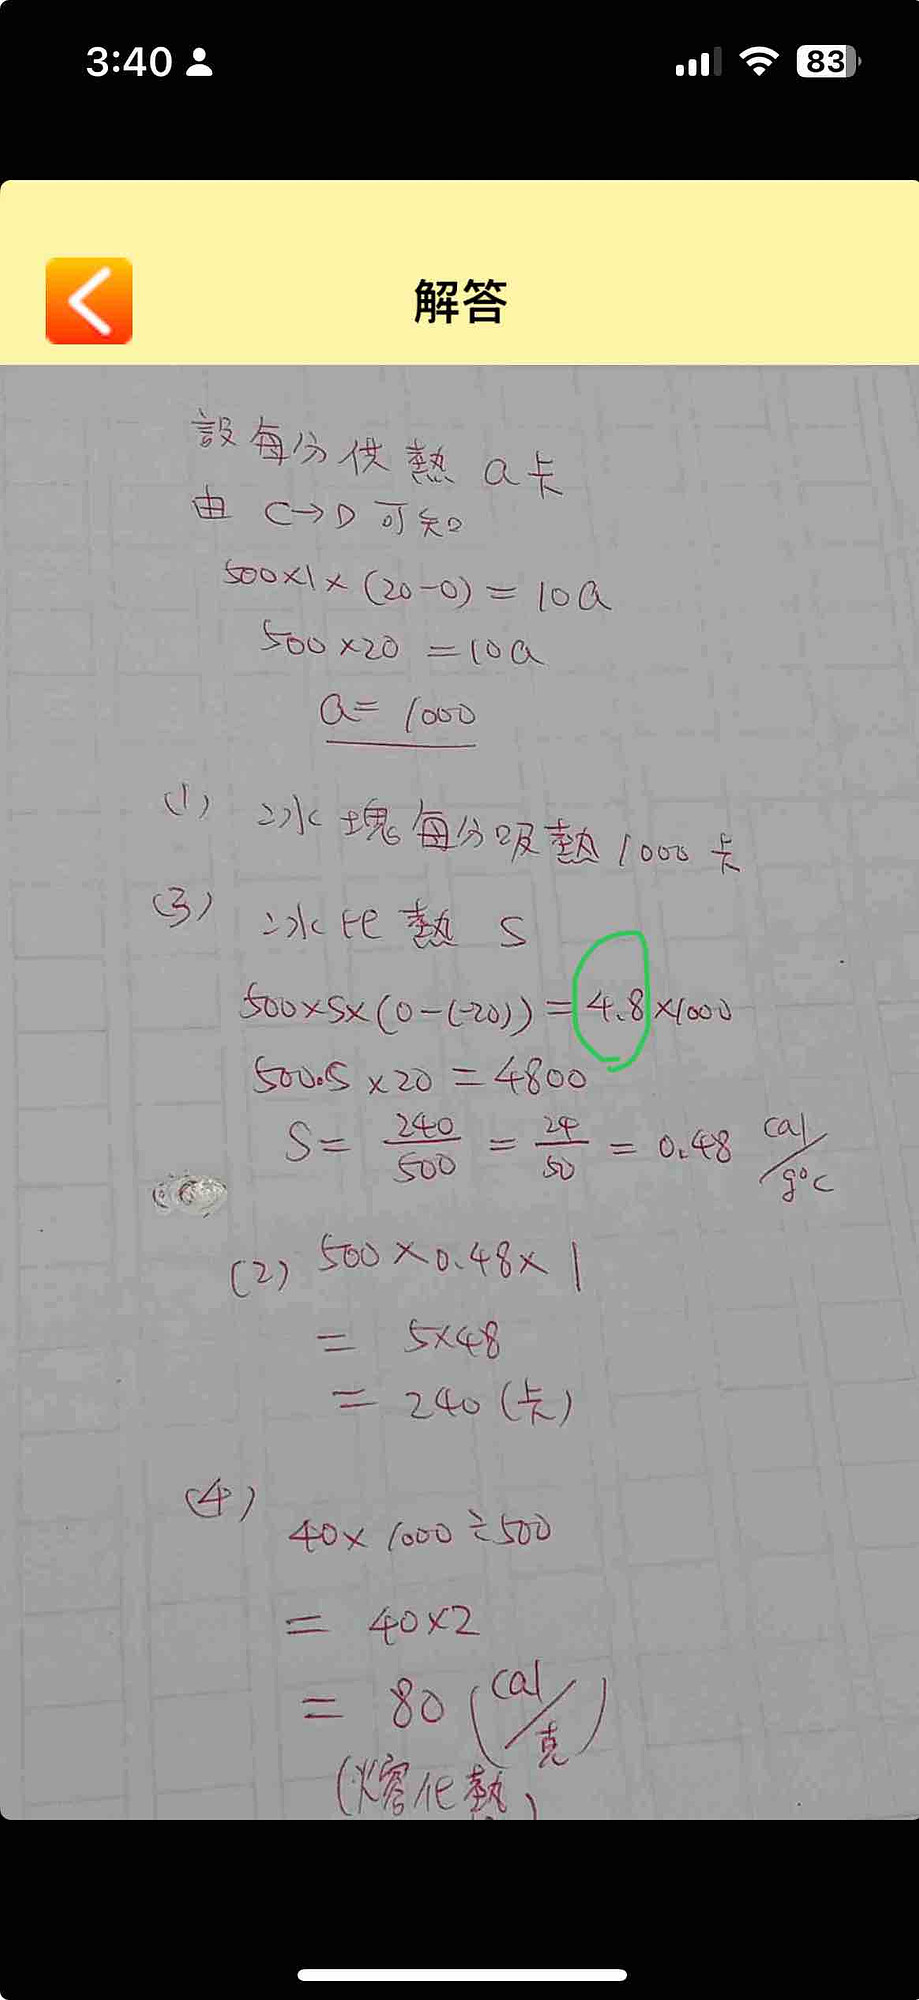 3:40
83
解答
設每分供熱 a卡
由 C→D 可知
500×1×(20-0)=10a
500×20=10a
a=1000
(1) 冰塊每分吸熱1000卡
(3) 冰比熱 S
500×S×(0-(-20))=4.8×1000
500.S×20=4800
S=240/500=24/50=0.48 cal/g°c
(2) 500×0.48×1
= 5×48
= 240(卡)
(4)
40×1000÷500
= 40×2
= 80 (cal/克)
(熔化熱)